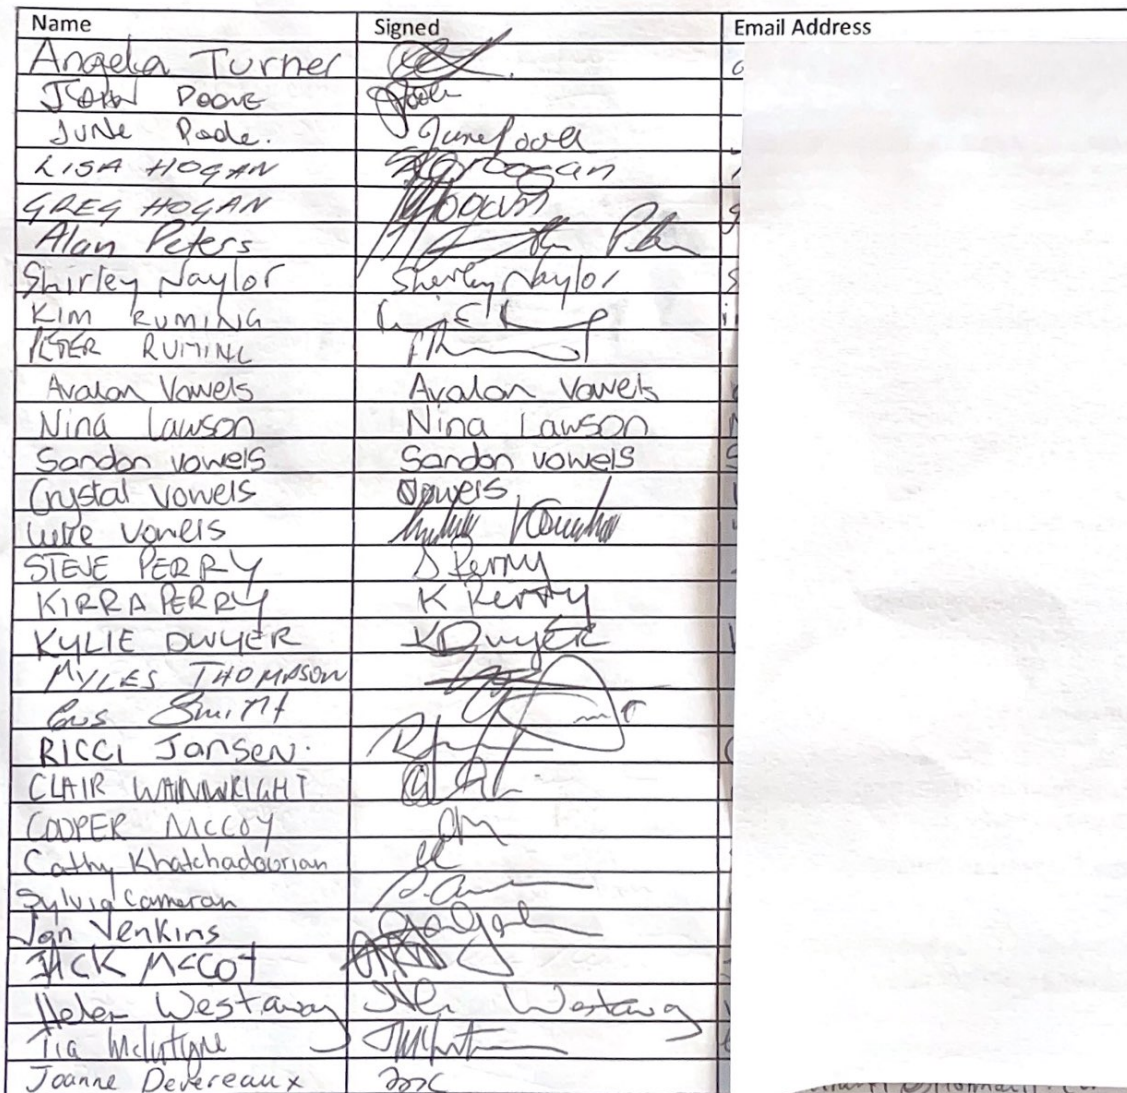 Name Signed Email Address
Angela Turner
JOHN POOLE Poole
June Poole. June Poole
LISA HOGAN Hogan
GREG HOGAN Hogan
Alan Peters
Shirley Naylor Shirley Naylor
KIM RUMING
PETER RUMING
Avalon Vowels Avalon Vowels
Nina Lawson Nina Lawson
Sandon vowels Sandon vowels
Crystal Vowels Vowels
Luke Vowels
STEVE PERRY S Perry
KIRRA PERRY K Perry
KYLIE DWYER K Dwyer
MYLES THOMPSON
Smith
RICCI JANSEN.
CLAIR WAINWRIGHT
COOPER McCOY
Cathy Khatchadourian
Sylvia Cameran
Jan Venkins
JACK McCOY
Helen Westaway Westaway
Tia McIntyre
Joanne Devereaux